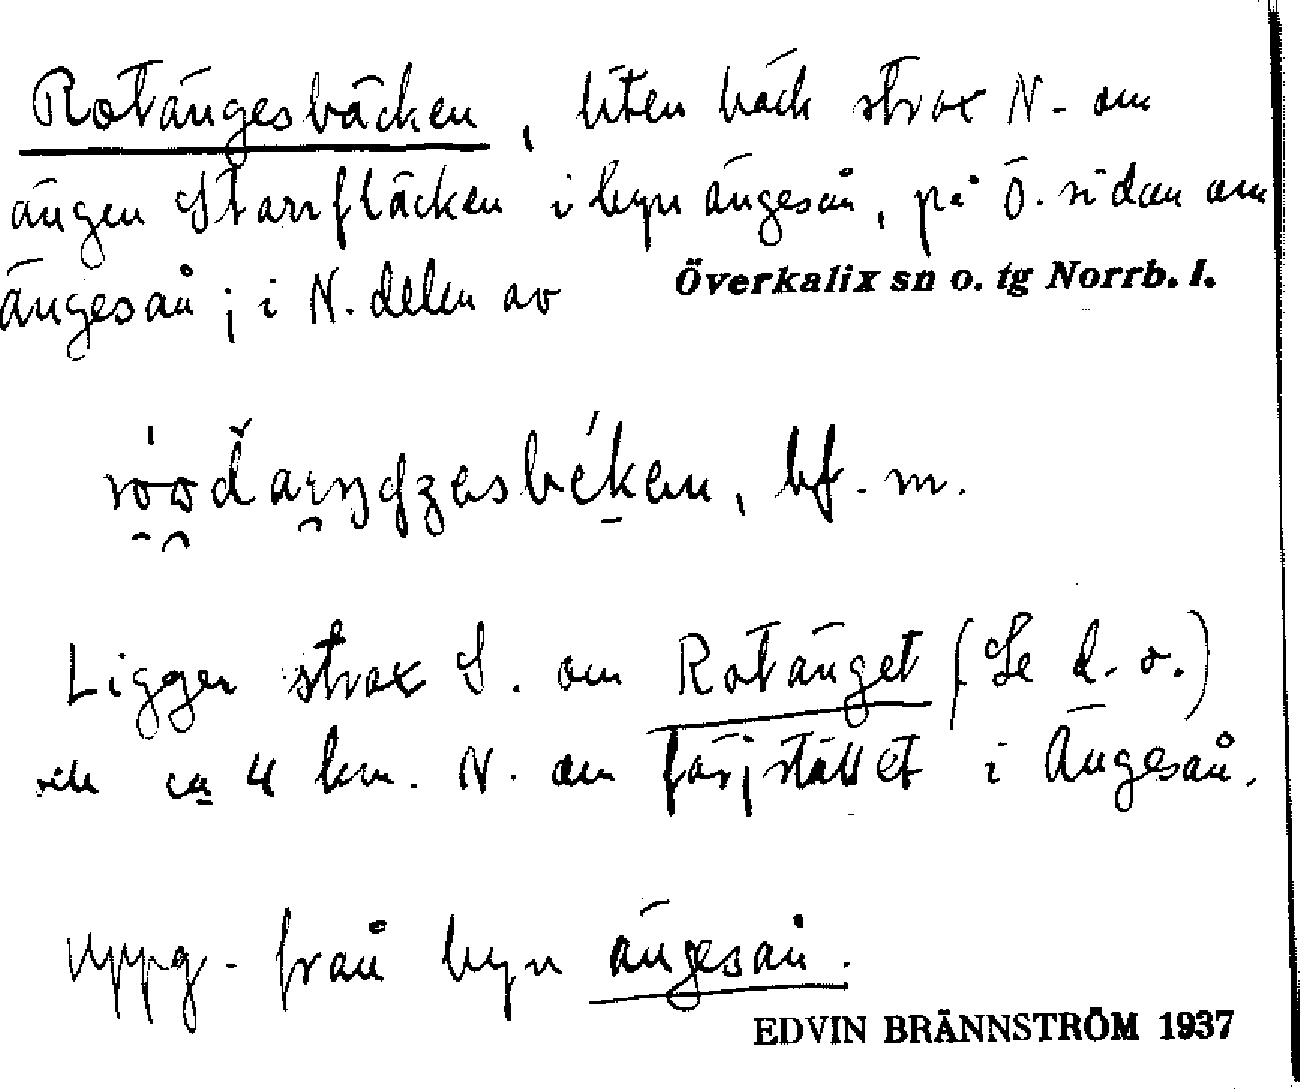 Rotängesbäcken, liten bäck strax N. om
ängen Starrfläcken i byn Ängesån, på Ö. sidan om
Ängesån; i N. delen av Överkalix sn o. tg Norrb. l.
bf. m.
Ligger strax S. om Rotänget (Se d. o.)
och ca 4 km. N. om färjstället i Ängesån.
Uppg. från byn Ängesån.
EDVIN BRÄNNSTRÖM 1937